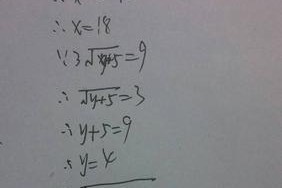 ∴ x=18
∵ 3√(y+5)=9
∴ √(y+5)=3
∴ y+5=9
∴ y=4